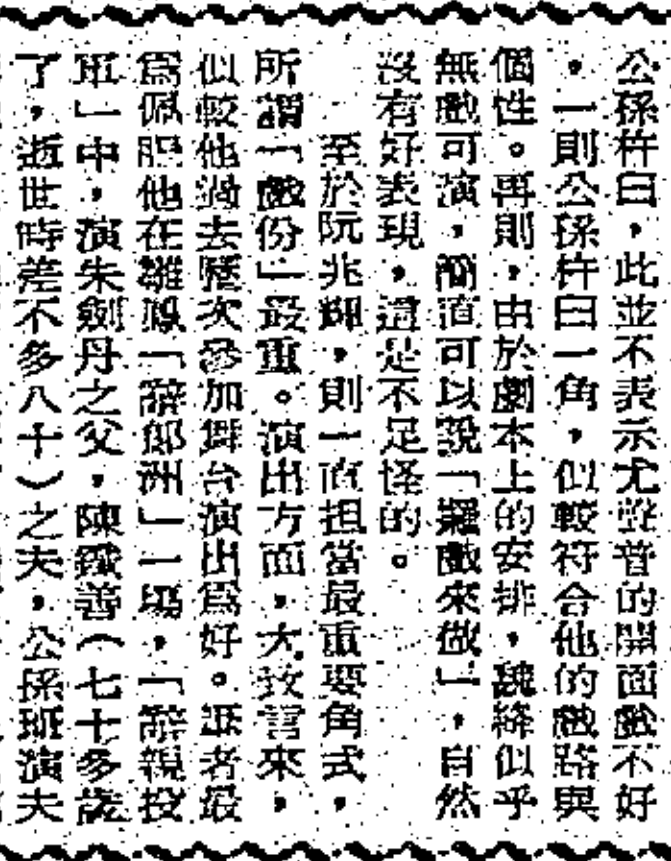 公孫杵臼，此並不表示尤聲普的開面戲不好
，一則公孫杵臼一角，似較符合他的戲路與
個性。再則，由於劇本上的安排，魏絳似乎
無戲可演，簡直可以說「羅戲來做」，自然
沒有好表現，這是不足怪的。
至於阮兆輝，則一直担當最重要角式，
所謂「戲份」最重。演出方面，大致言來，
似較他過去歷次參加舞台演出爲好。筆者最
爲佩服他在雛鳳「辭郎洲」一塲，「辭親投
軍」中，演朱劍丹之父，陳鐵善（七十多歲
了，逝世時差不多八十）之夫，公孫班演夫